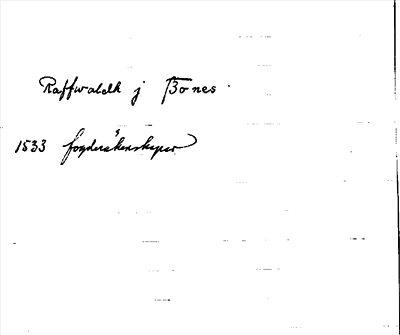 Raffwaldh j Bones
1533 fogderäkenskaper